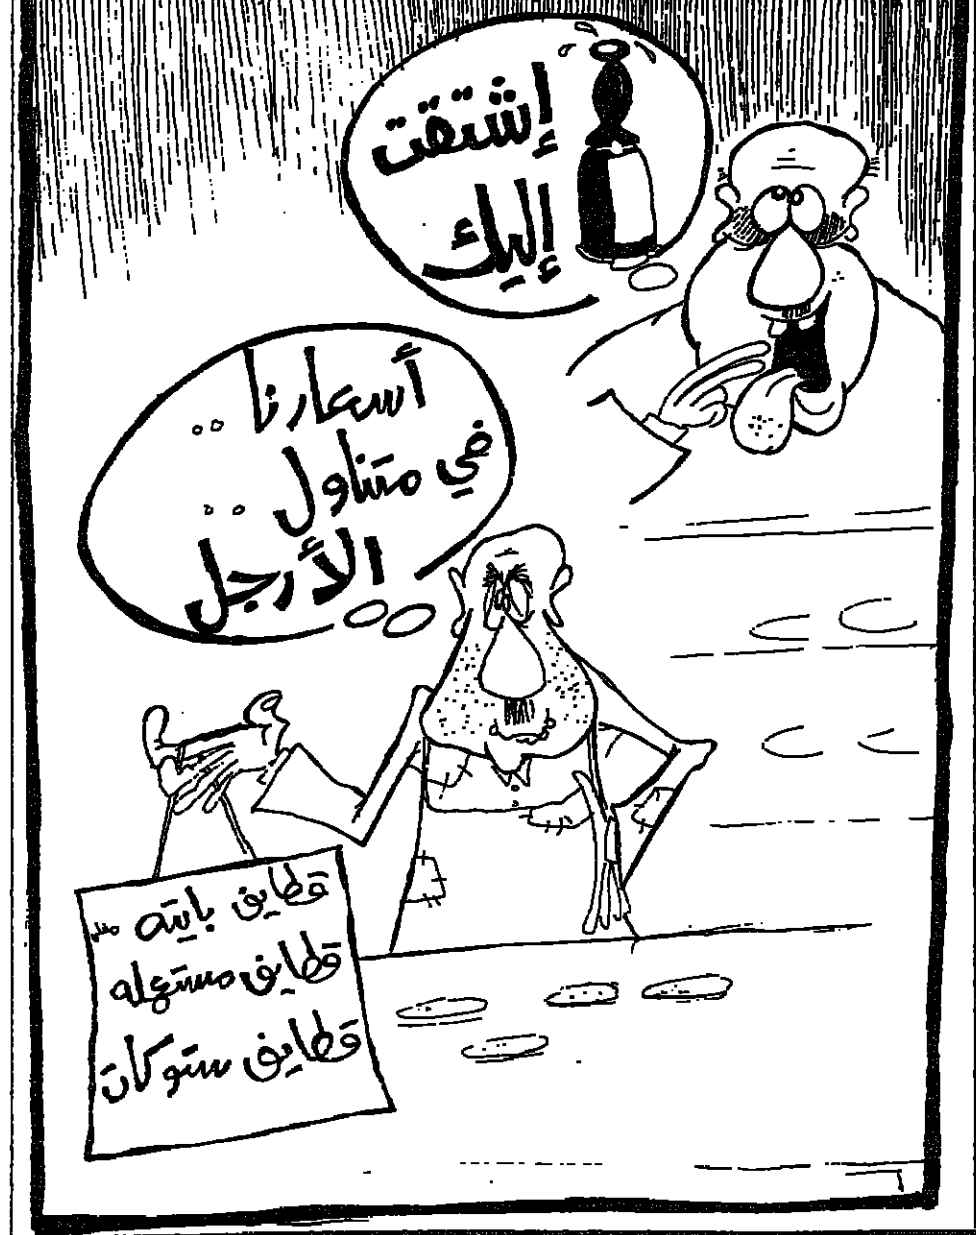 إشتقت
إليك
أسعارنا ..
في متناول ..
الأرجل
قطايف بايته
قطايف مستعمله
قطايف ستوكات